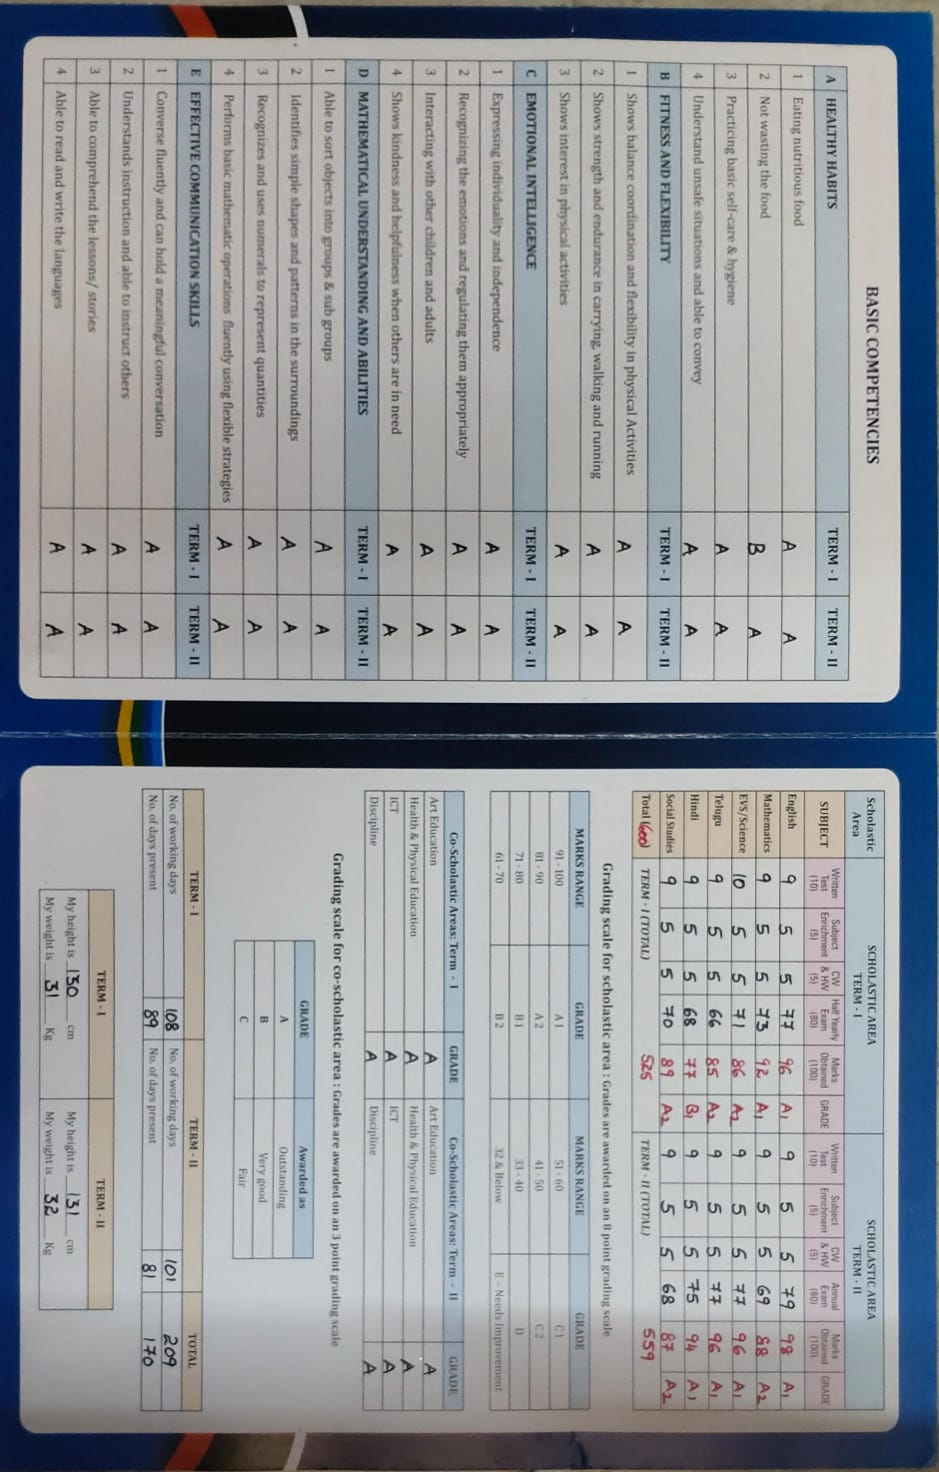 BASIC COMPETENCIES
A HEALTHY HABITS TERM - I TERM - II
1 Eating nutritious food A A
2 Not wasting the food B A
3 Practicing basic self-care & hygiene A A
4 Understand unsafe situations and able to convey A A
B FITNESS AND FLEXIBILITY TERM - I TERM - II
1 Shows balance coordination and flexibility in physical Activities A A
2 Shows strength and endurance in carrying, walking and running A A
3 Shows interest in physical activities A A
C EMOTIONAL INTELLIGENCE TERM - I TERM - II
1 Expressing individuality and independence A A
2 Recognizing the emotions and regulating them appropriately A A
3 Interacting with other children and adults A A
4 Shows kindness and helpfulness when others are in need A A
D MATHEMATICAL UNDERSTANDING AND ABILITIES TERM - I TERM - II
1 Able to sort objects into groups & sub groups A A
2 Identifies simple shapes and patterns in the surroundings A A
3 Recognizes and uses numerals to represent quantities A A
4 Performs basic mathematic operations fluently using flexible strategies A A
E EFFECTIVE COMMUNICATION SKILLS TERM - I TERM - II
1 Converse fluently and can hold a meaningful conversation A A
2 Understands instruction and able to instruct others A A
3 Able to comprehend the lessons/ stories A A
4 Able to read and write the languages A A
Scholastic Area SCHOLASTIC AREA TERM - I SCHOLASTIC AREA TERM - II
SUBJECT Written Test (10) Subject Enrichment (5) CW & HW (5) Half Yearly Exam (80) Marks Obtained (100) GRADE Written Test (10) Subject Enrichment (5) CW & HW (5) Annual Exam (80) Marks Obtained (100) GRADE
English 9 5 5 77 96 A1 9 5 5 79 98 A1
Mathematics 9 5 5 73 92 A1 9 5 5 69 88 A2
EVS/Science 10 5 5 71 86 A2 9 5 5 77 96 A1
Telugu 9 5 5 66 85 A2 9 5 5 77 96 A1
Hindi 9 5 5 68 77 B1 9 5 5 75 94 A1
Social Studies 9 5 5 70 89 A2 9 5 5 68 87 A2
Total (600) TERM - I (TOTAL) 525 TERM - II (TOTAL) 559
Grading scale for scholastic area : Grades are awarded on an 8 point grading scale
MARKS RANGE GRADE MARKS RANGE GRADE
91 - 100 A 1 51 - 60 C 1
81 - 90 A 2 41 - 50 C 2
71 - 80 B 1 33 - 40 D
61 - 70 B 2 32 & Below E - Needs Improvement
Co-Scholastic Areas: Term - I GRADE Co-Scholastic Areas: Term - II GRADE
Art Education A Art Education A
Health & Physical Education A Health & Physical Education A
ICT A ICT A
Discipline A Discipline A
Grading scale for co-scholastic area : Grades are awarded on an 3 point grading scale
GRADE Awarded as
A Outstanding
B Very good
C Fair
TERM - I TERM - II TOTAL
No. of working days 108 No. of working days 101 209
No. of days present 89 No. of days present 81 170
TERM - I TERM - II
My height is 130 cm My height is 131 cm
My weight is 31 Kg My weight is 32 Kg